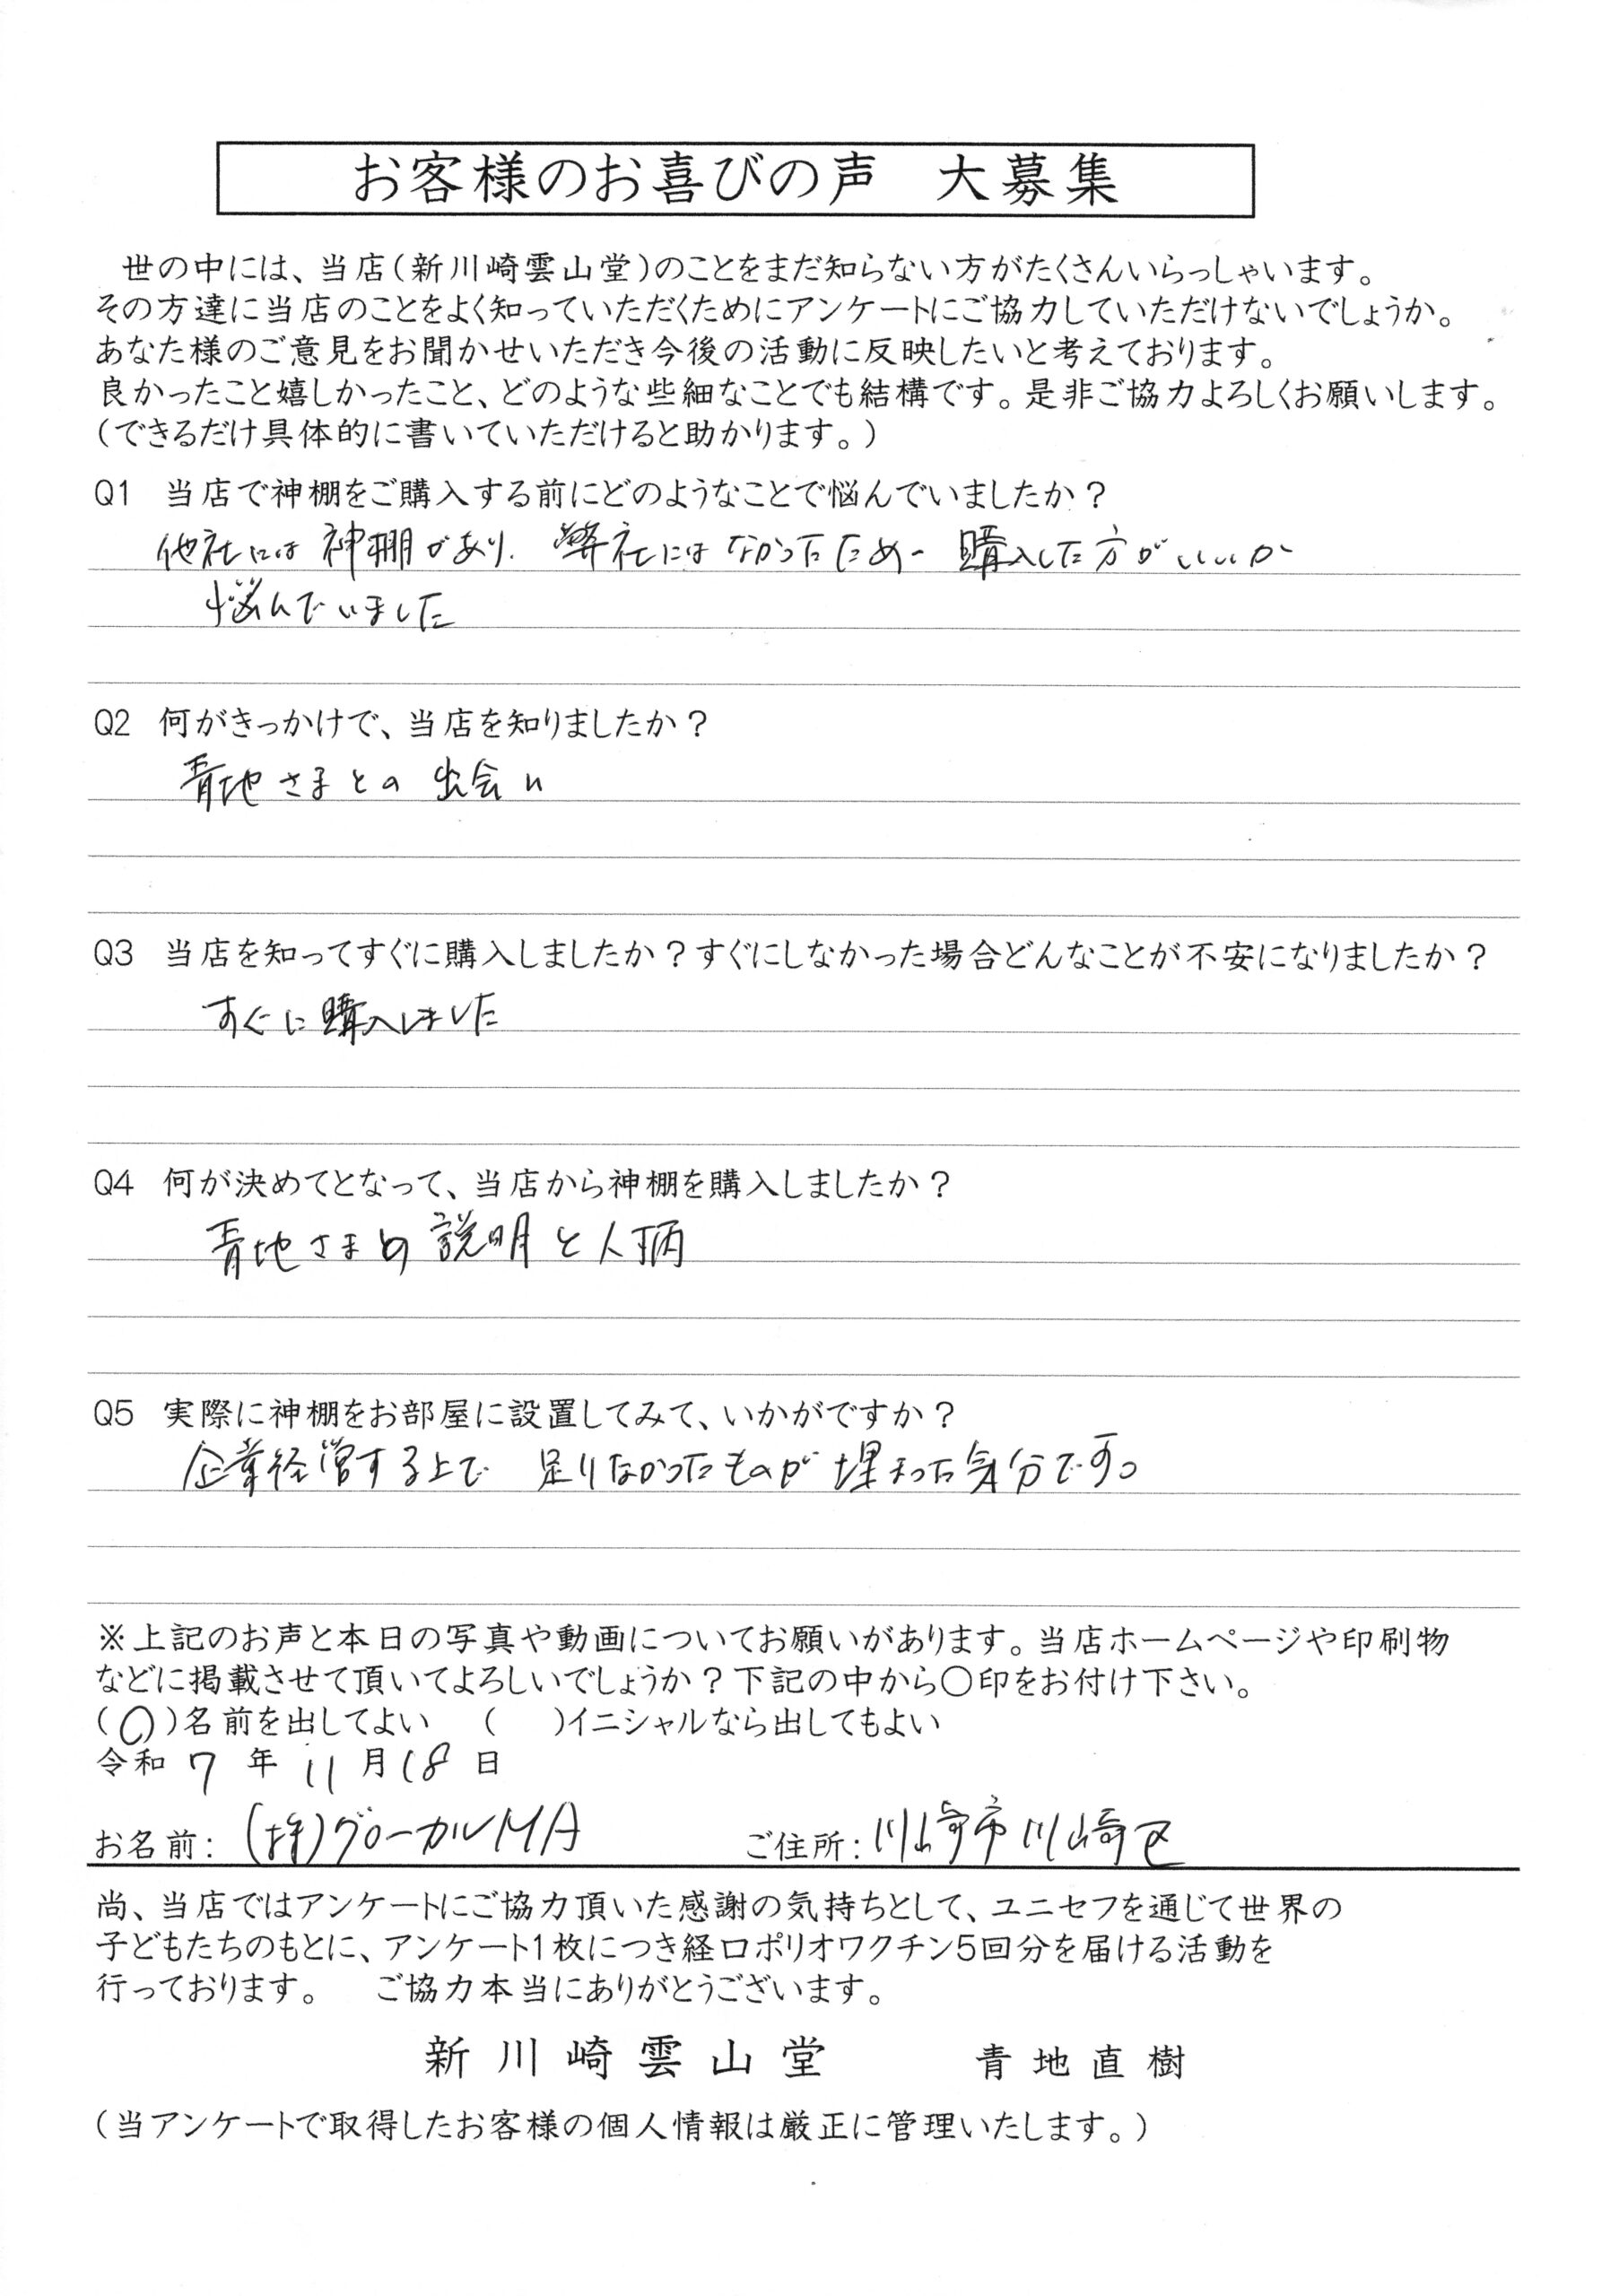 お客様のお喜びの声　大募集
世の中には、当店(新川崎雲山堂)のことをまだ知らない方がたくさんいらっしゃいます。
その方達に当店のことをよく知っていただくためにアンケートにご協力していただけないでしょうか。
あなた様のご意見をお聞かせいただき今後の活動に反映したいと考えております。
良かったこと嬉しかったこと、どのような些細なことでも結構です。是非ご協力よろしくお願いします。
(できるだけ具体的に書いていただけると助かります。)
Q1　当店で神棚をご購入する前にどのようなことで悩んでいましたか？
他社には神棚があり、弊社にはなかったため、購入した方がいいか
悩んでいました
Q2　何がきっかけで、当店を知りましたか？
青地さまとの出会い
Q3　当店を知ってすぐに購入しましたか？すぐにしなかった場合どんなことが不安になりましたか？
すぐに購入しました
Q4　何が決めてとなって、当店から神棚を購入しましたか？
青地さまの説明と人柄
Q5　実際に神棚をお部屋に設置してみて、いかがですか？
企業経営する上で　足りなかったものが埋まった気分です。
※上記のお声と本日の写真や動画についてお願いがあります。当店ホームページや印刷物
などに掲載させて頂いてよろしいでしょうか？下記の中から〇印をお付け下さい。
(〇)名前を出してよい　(　)イニシャルなら出してもよい
令和 7 年 11 月 18 日
お名前：(株)グローカルMA　ご住所：川崎市川崎区
尚、当店ではアンケートにご協力頂いた感謝の気持ちとして、ユニセフを通じて世界の
子どもたちのもとに、アンケート1枚につき経口ポリオワクチン5回分を届ける活動を
行っております。　ご協力本当にありがとうございます。
新川崎雲山堂　青地直樹
(当アンケートで取得したお客様の個人情報は厳正に管理いたします。)